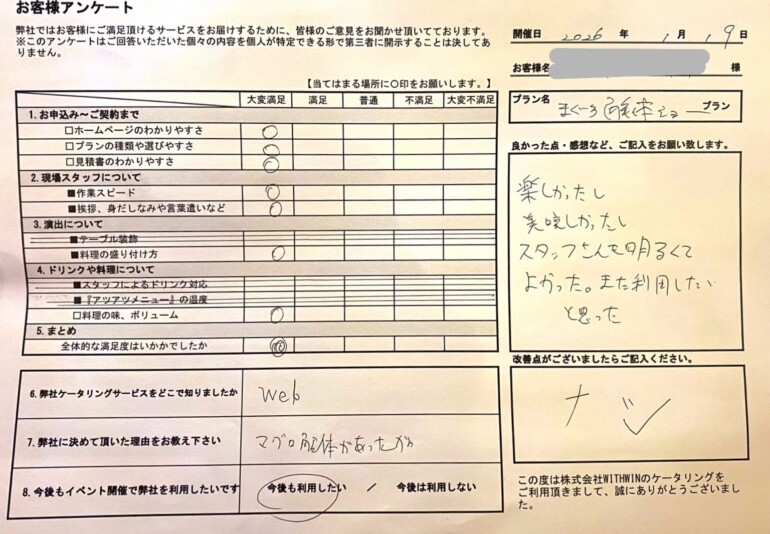 お客様アンケート
弊社ではお客様にご満足頂けるサービスをお届けするために、皆様のご意見をお聞かせ頂いております。
※このアンケートはご回答いただいた個々の内容を個人が特定できる形で第三者に開示することは決してあ
りません。
開催日 2026 年 1 月 19 日
お客様名 様
【当てはまる場所に〇印をお願いします。】
プラン名 まぐろ解体ショー プラン
大変満足 満足 普通 不満足 大変不満足
1. お申込み～ご契約まで
□ホームページのわかりやすさ ○
□プランの種類や選びやすさ ○
□見積書のわかりやすさ ○
2. 現場スタッフについて
■作業スピード ○
■挨拶、身だしなみや言葉遣いなど ○
3. 演出について
■テーブル装飾
■料理の盛り付け方 ○
4. ドリンクや料理について
■スタッフによるドリンク対応
■『アツアツメニュー』の温度
□料理の味、ボリューム ○
5. まとめ
全体的な満足度はいかかでしたか ◎
良かった点・感想など、ご記入をお願い致します。
楽しかったし
美味しかったし
スタッフさんも明るくて
よかった。また利用したい
と思った
改善点がございましたらご記入ください。
ナシ
6. 弊社ケータリングサービスをどこで知りましたか Web
7. 弊社に決めて頂いた理由をお教え下さい マグロ解体があったから
8. 今後もイベント開催で弊社を利用したいです 今後も利用したい / 今後は利用しない
この度は株式会社WITHWINのケータリングを
ご利用頂きまして、誠にありがとうございまし
た。